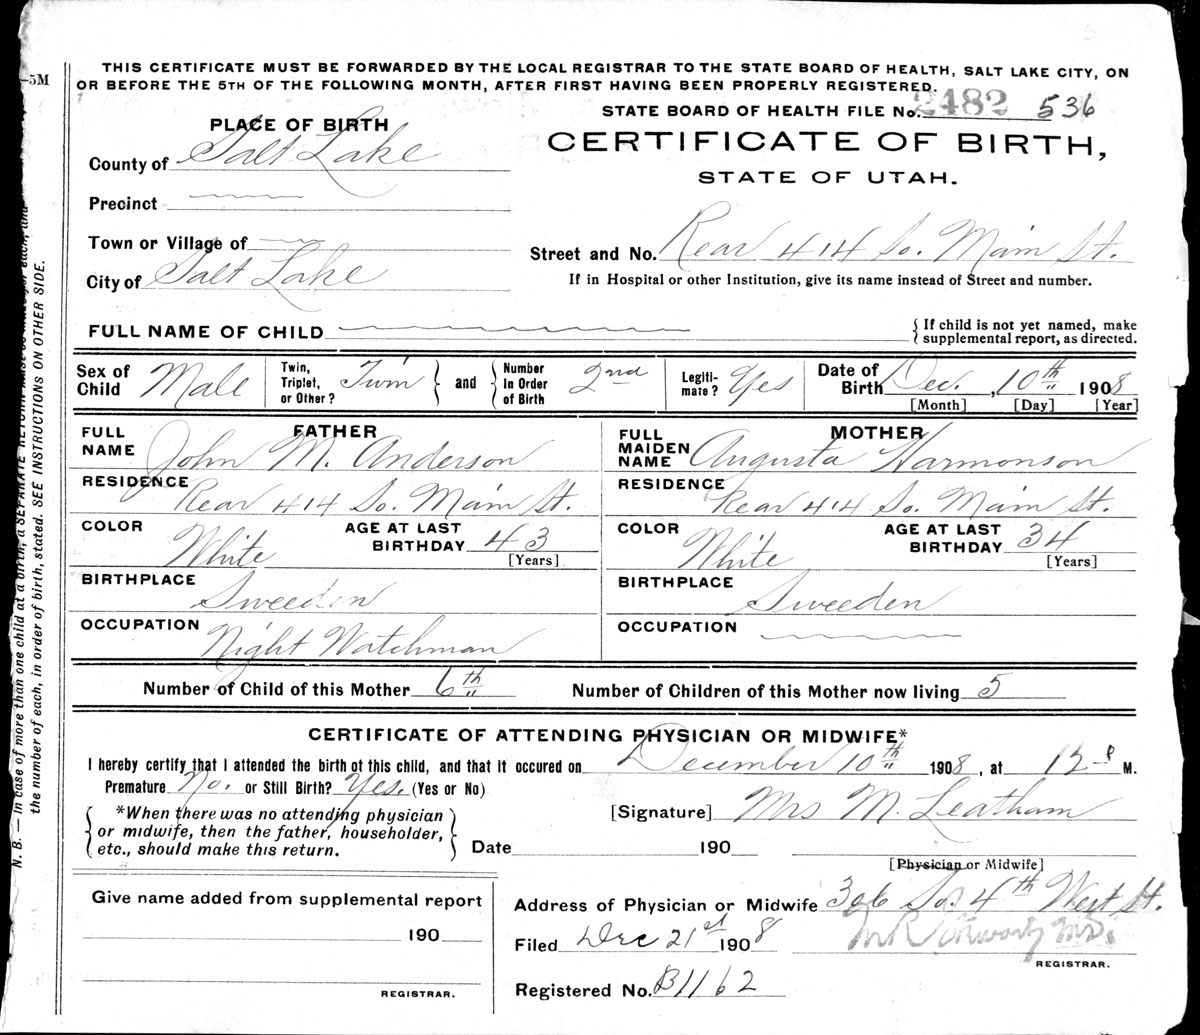 THIS CERTIFICATE MUST BE FORWARDED BY THE LOCAL REGISTRAR TO THE STATE BOARD OF HEALTH, SALT LAKE CITY, ON
OR BEFORE THE 5TH OF THE FOLLOWING MONTH, AFTER FIRST HAVING BEEN PROPERLY REGISTERED.
—5M
STATE BOARD OF HEALTH FILE No. 2482 536
PLACE OF BIRTH
CERTIFICATE OF BIRTH,
STATE OF UTAH.
County of Salt Lake
Precinct
Town or Village of
Street and No. Rear 414 So. Main St.
City of Salt Lake
If in Hospital or other Institution, give its name instead of Street and number.
FULL NAME OF CHILD
If child is not yet named, make
supplemental report, as directed.
Sex of Child Male
Twin, Triplet, or Other? Twin
and
Number in Order of Birth 2nd
Legiti-mate? Yes
Date of Birth Dec., 10th 1908
[Month] [Day] [Year]
FATHER
FULL NAME John M. Anderson
RESIDENCE Rear 414 So. Main St.
COLOR White
AGE AT LAST BIRTHDAY 43
[Years]
BIRTHPLACE Sweeden
OCCUPATION Night Watchman
MOTHER
FULL MAIDEN NAME Augusta Harmonson
RESIDENCE Rear 414 So. Main St.
COLOR White
AGE AT LAST BIRTHDAY 34
[Years]
BIRTHPLACE Sweeden
OCCUPATION
Number of Child of this Mother 6th
Number of Children of this Mother now living 5
CERTIFICATE OF ATTENDING PHYSICIAN OR MIDWIFE*
I hereby certify that I attended the birth of this child, and that it occured on December 10th 1908, at 12 M.
Premature No. or Still Birth? Yes. (Yes or No)
*When there was no attending physician
or midwife, then the father, householder,
etc., should make this return.
[Signature] Mrs M. Leatham
Date 190
[Physician or Midwife]
Give name added from supplemental report
190
REGISTRAR.
Address of Physician or Midwife 306 So. 4th West St.
Filed Dec 21st 1908
REGISTRAR.
Registered No. B1162
N. B. — In case of more than one child at a birth, a SEPARATE RETURN must be made for each, and
the number of each, in order of birth, stated. SEE INSTRUCTIONS ON OTHER SIDE.